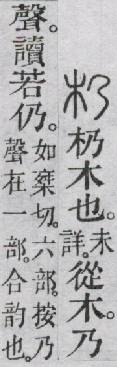 木也。未詳。從木。乃
聲。讀若仍。如椉切。六部。按乃聲在一部。合韵也。